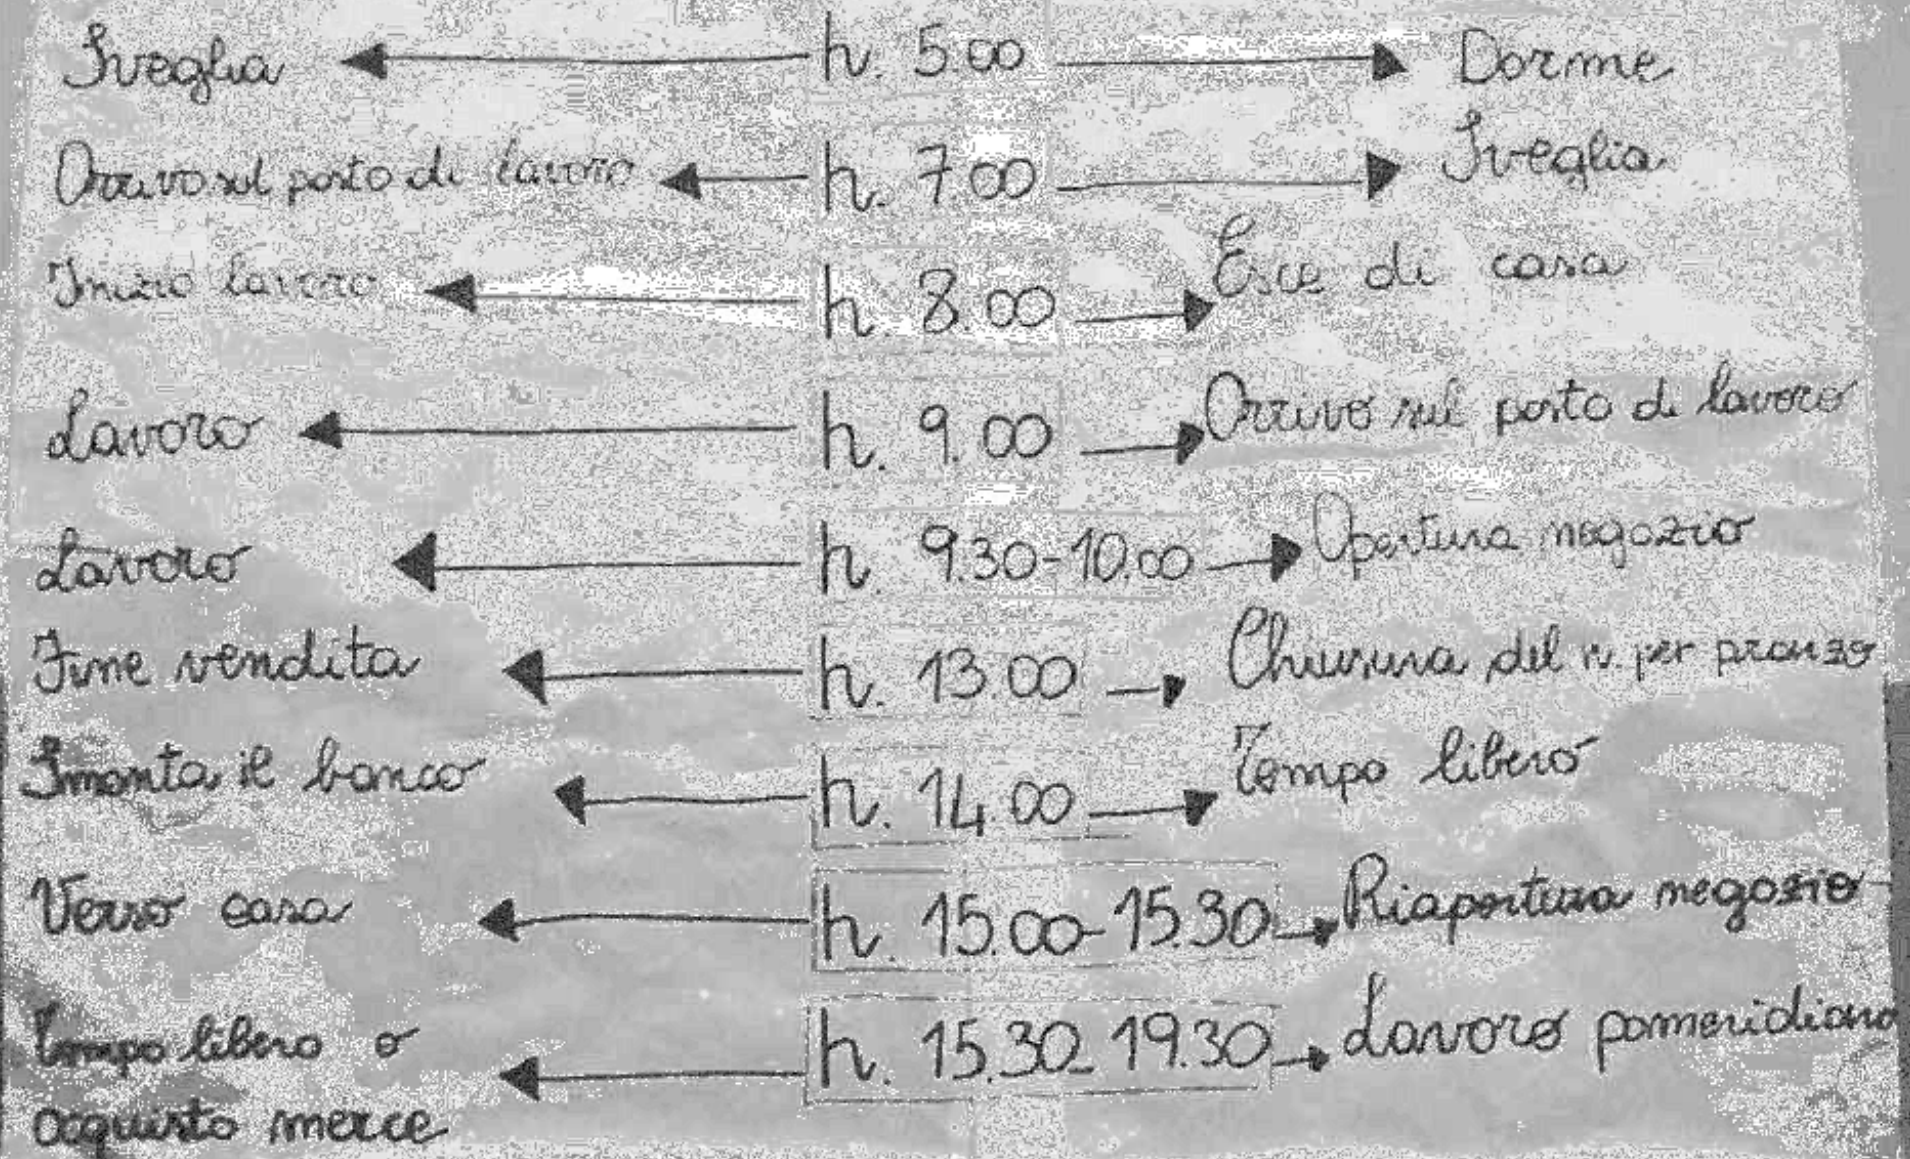 Sveglia h. 5.00 Dorme
Arrivo sul posto di lavoro h. 7.00 Sveglia
Inizio lavoro h. 8.00 Esce di casa
Lavoro h. 9.00 Arrivo sul posto di lavoro
Lavoro h. 9.30-10.00 Apertura negozio
Fine vendita h. 13.00 Chiusura del n. per pranzo
Smonta il banco h. 14.00 Tempo libero
Verso casa h. 15.00-15.30 Riapertura negozio
Tempo libero o h. 15.30-19.30 Lavoro pomeridiano
acquisto merce